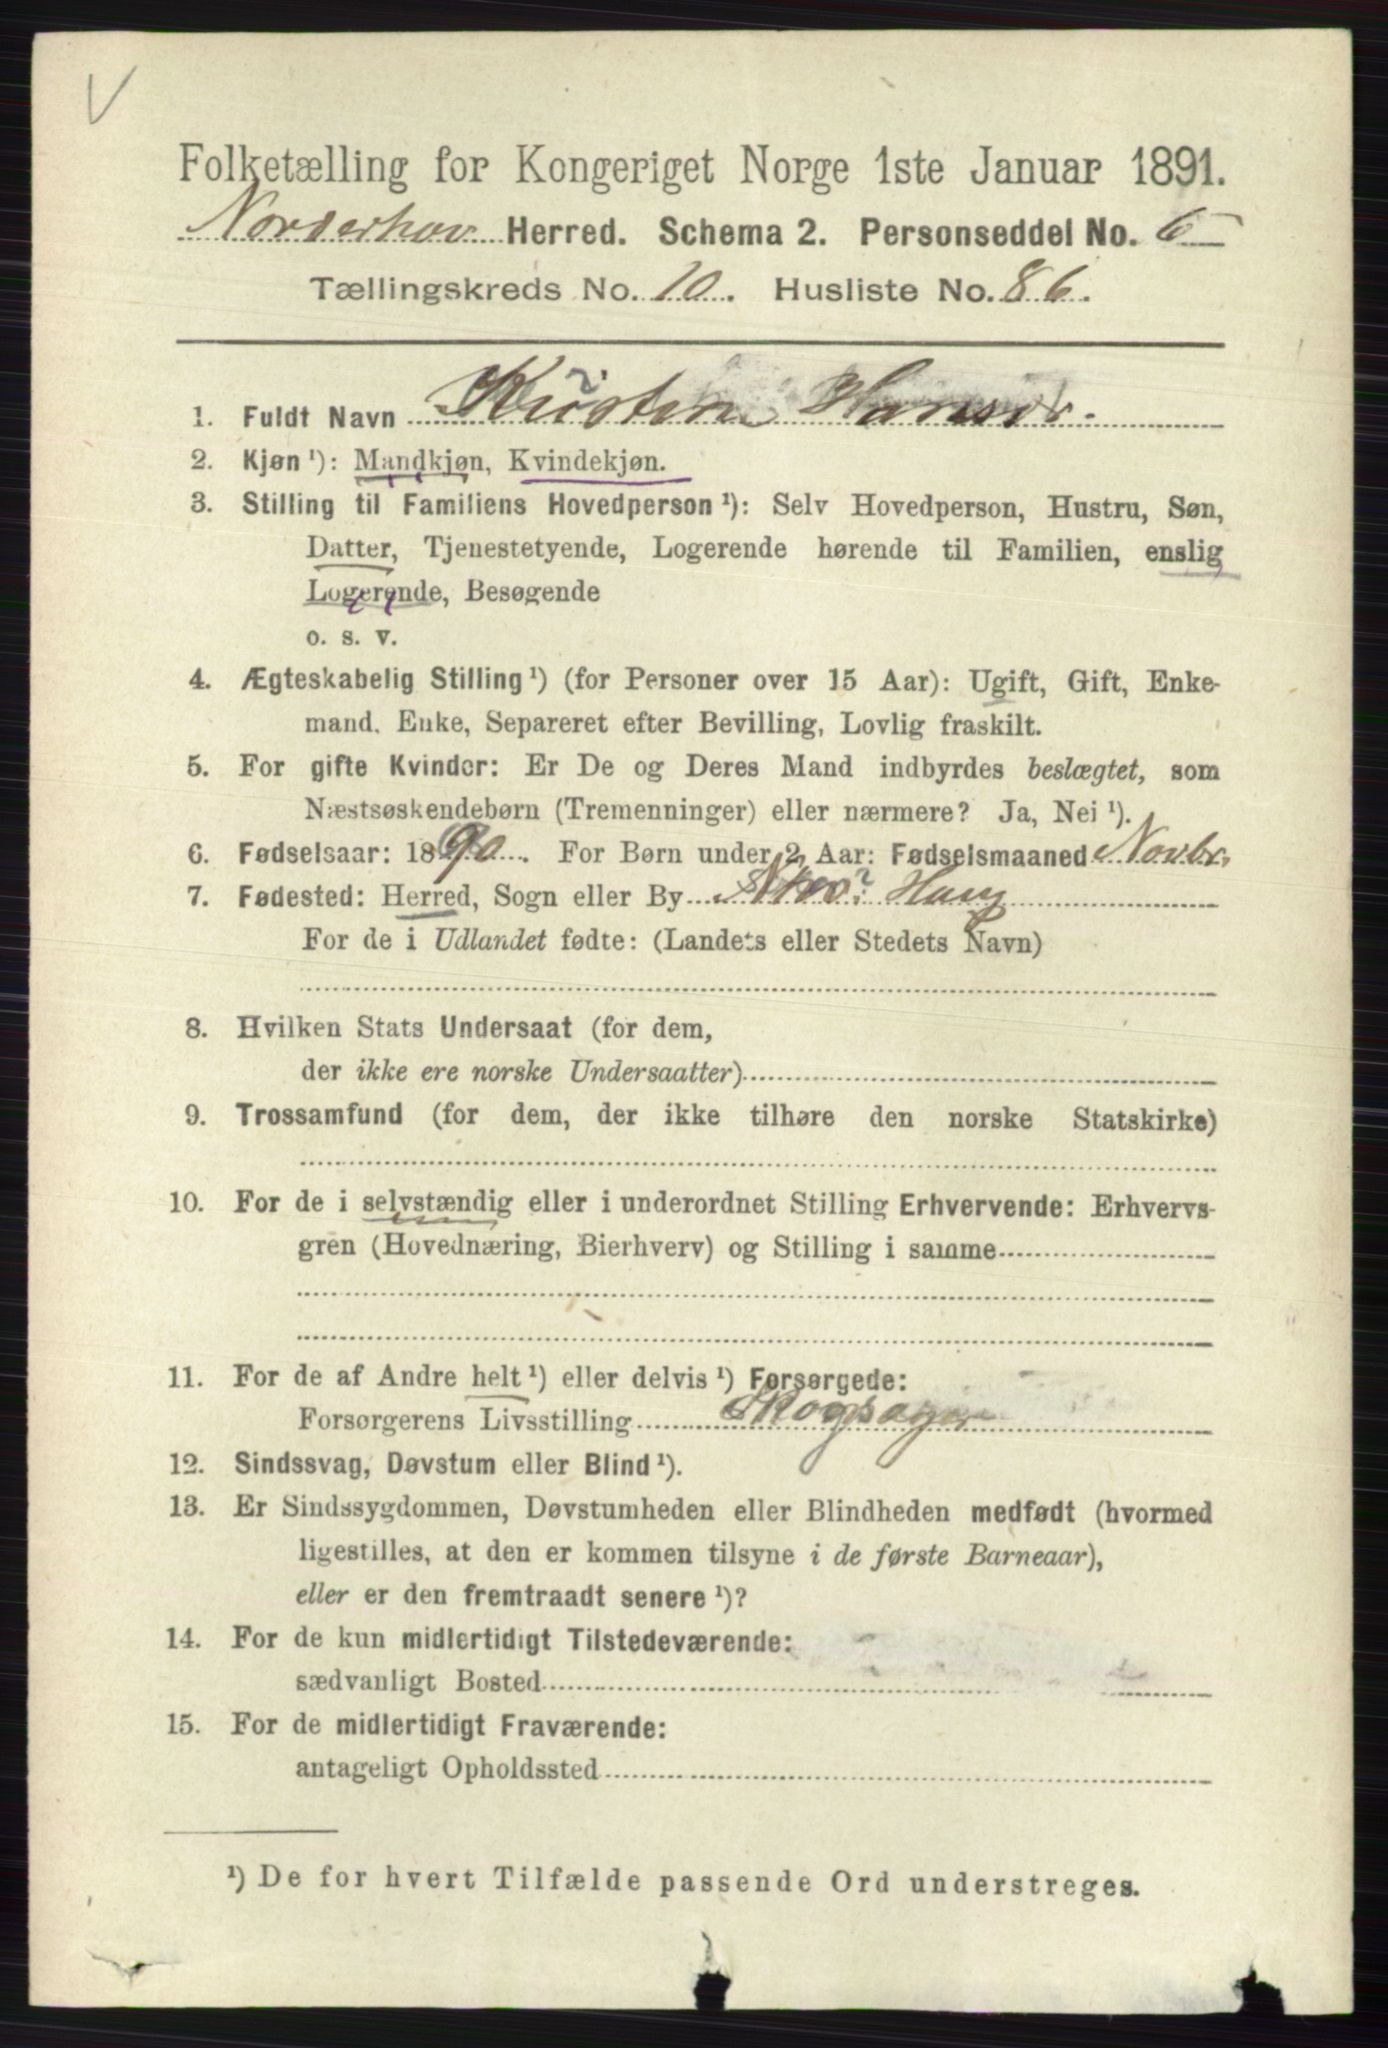 V
Folketælling for Kongeriget Norge 1ste Januar 1891.
Norderhov Herred. Schema 2. Personseddel No. 6
Tællingskreds No. 10. Husliste No. 86.
1. Fuldt Navn Kristine Hansdr.
2. Kjøn ¹): Mandkjøn, Kvindekjøn.
3. Stilling til Familiens Hovedperson ¹): Selv Hovedperson, Hustru, Søn,
Datter, Tjenestetyende, Logerende hørende til Familien, enslig
Logerende, Besøgende
o. s. v.
4. Ægteskabelig Stilling ¹) (for Personer over 15 Aar): Ugift, Gift, Enke-
mand, Enke, Separeret efter Bevilling, Lovlig fraskilt.
5. For gifte Kvinder: Er De og Deres Mand indbyrdes beslægtet, som
Næstsøskendebørn (Tremenninger) eller nærmere? Ja, Nei ¹).
6. Fødselsaar: 1890. For Børn under 2 Aar: Fødselsmaaned Novbr.
7. Fødested: Herred, Sogn eller By Haug
For de i Udlandet fødte: (Landets eller Stedets Navn)
8. Hvilken Stats Undersaat (for dem,
der ikke ere norske Undersaatter)
9. Trossamfund (for dem, der ikke tilhøre den norske Statskirke)
10. For de i selvstændig eller i underordnet Stilling Erhvervende: Erhvervs-
gren (Hovednæring, Bierhverv) og Stilling i samme
11. For de af Andre helt ¹) eller delvis ¹) Forsørgede:
Forsørgerens Livsstilling
12. Sindssvag, Døvstum eller Blind ¹).
13. Er Sindssygdommen, Døvstumheden eller Blindheden medfødt (hvormed
ligestilles, at den er kommen tilsyne i de første Barneaar),
eller er den fremtraadt senere ¹)?
14. For de kun midlertidigt Tilstedeværende:
sædvanligt Bosted
15. For de midlertidigt Fraværende:
antageligt Opholdssted
¹) De for hvert Tilfælde passende Ord understreges.